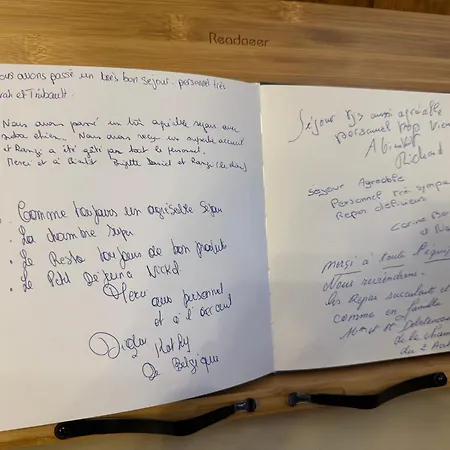 Readaeer
ous avons passé un très bon séjour. personnel très
rah et Thibault.
Nous avons passé un très agréable séjour avec
notre chien. Nous avons reçu un superbe accueil
et Ranji a été gâté par tout le personnel.
Merci et à bientôt Brigitte Daniel et Ranji (le chien)
. Comme toujours un agréable séjour
. La chambre super
. Le Resto toujours de bon produits
. Le Petit Déjeuné Nickel
Merci aux personnel
et à l'accueil
De Belgique
Séjour très aussi agréable
personnel top
A bientôt
Richard
Séjour Agréable
Personnel très sympa
Repas délicieux
Carine
et
merçi à toute l'équipe
Nous reviendrons.
les Repas succulents et
comme en famille
Mme et Mr
de la cham
du 2 Aout